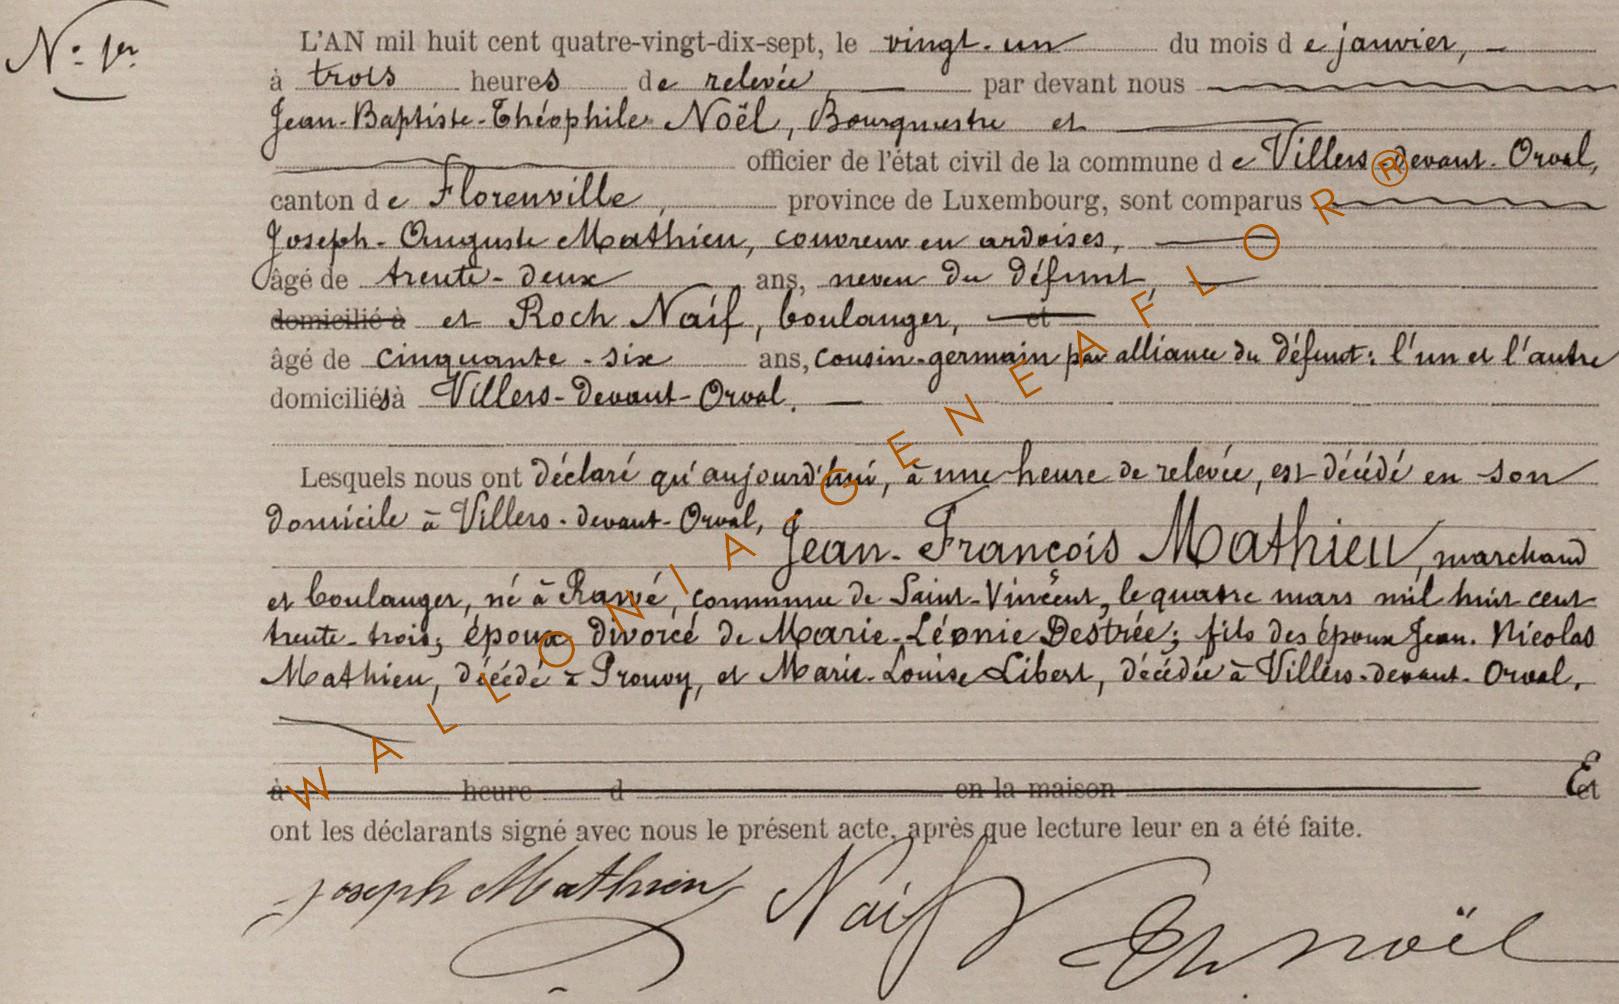 N° 1er
L'AN mil huit cent quatre-vingt-dix-sept, le vingt-un du mois de janvier,
à trois heures de relevée, par devant nous
Jean-Baptiste-Théophile Noël, Bourgmestre et
officier de l'état civil de la commune de Villers-devant-Orval,
canton de Florenville, province de Luxembourg, sont comparus
Joseph-Auguste Mathieu, couvreur en ardoises,
âgé de trente-deux ans, neveu du défunt,
domicilié à et Roch Naïf, boulanger, et
âgé de cinquante-six ans, cousin-germain par alliance du défunt: l'un et l'autre
domiciliés à Villers-devant-Orval.
Lesquels nous ont déclaré qu'aujourd'hui, à une heure de relevée, est décédé en son
domicile à Villers-devant-Orval, Jean-François Mathieu, marchand
et boulanger, né à Rawé, commune de Saint-Vincent, le quatre mars mil huit cent
trente-trois; époux divorcé de Marie-Léonie Destrée; fils des époux Jean-Nicolas
Mathieu, décédé à Prouvy, et Marie-Louise Libert, décédée à Villers-devant-Orval.
à heure d en la maison Et
ont les déclarants signé avec nous le présent acte, après que lecture leur en a été faite.
Joseph Mathieu Naïf Th Noël
WALLONIA-GENEAFLOR®